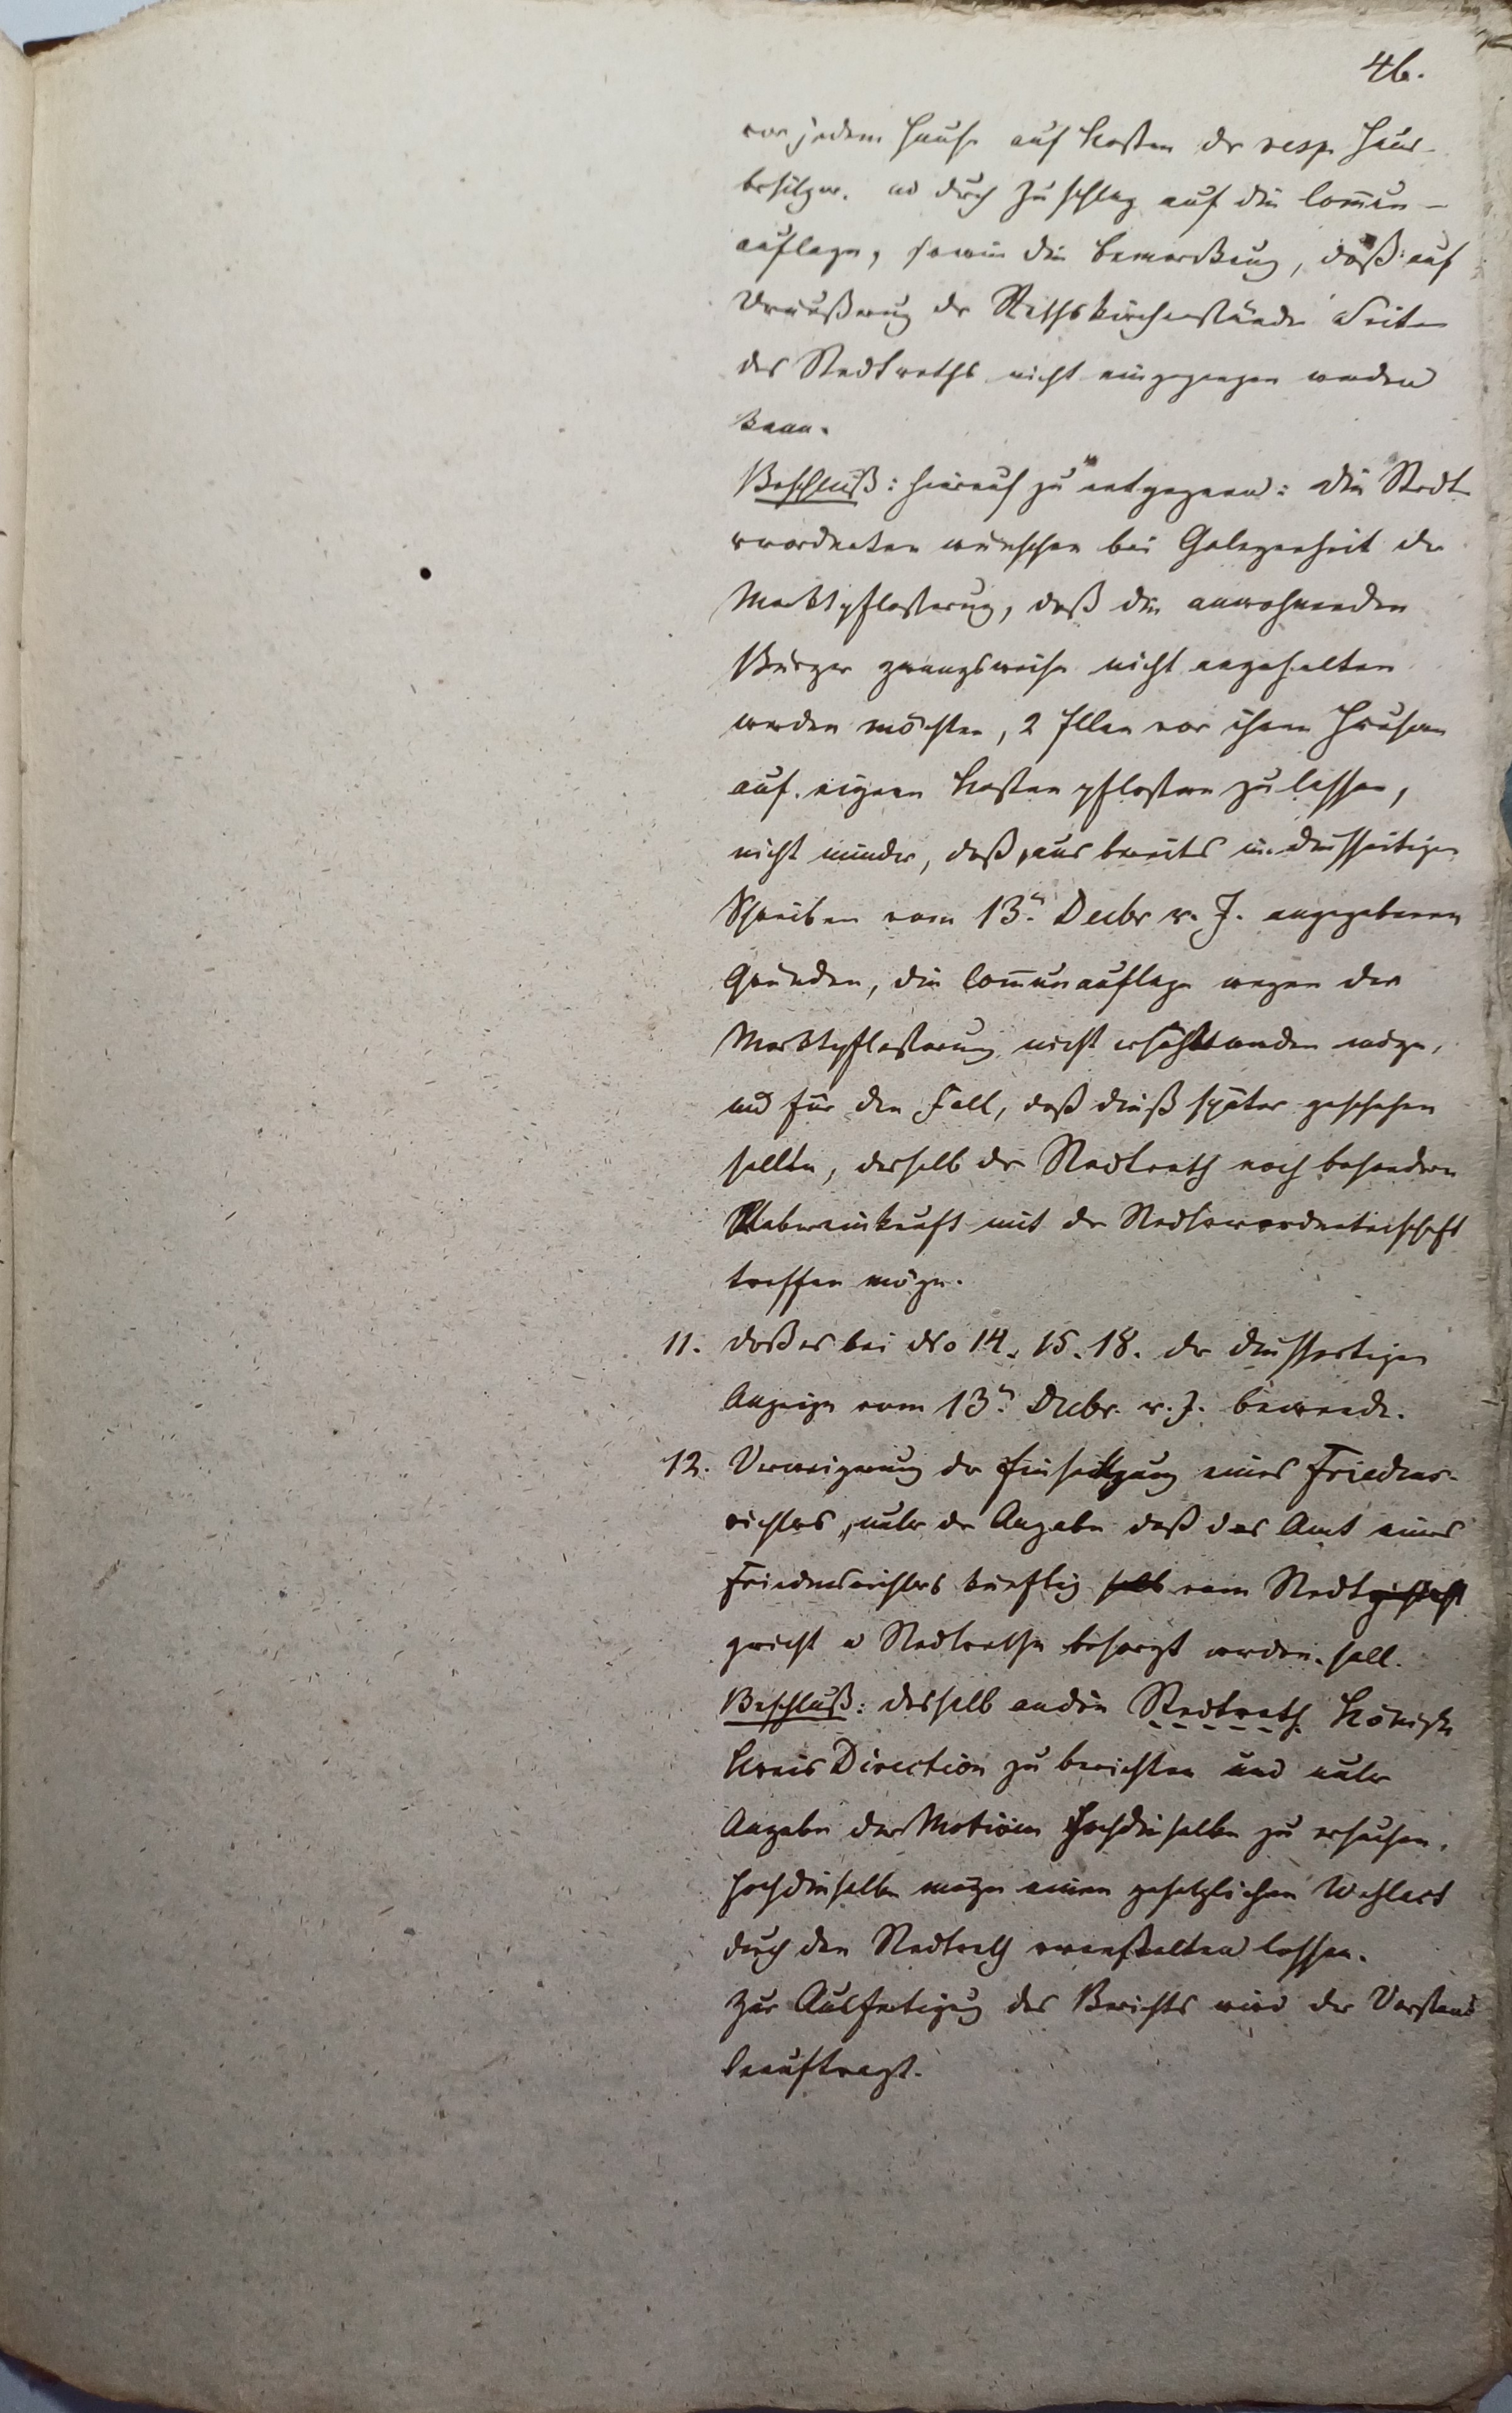 46.
vor jedem Hause auf Kosten der resp. Haus-
besitzer. und durch Zuschlag auf die Com̄un-
auflage, sowie die Bemerkung, daß auf
Veräußerung der Rathskirchenstände Seiten
des Stadtraths nicht eingegangen werden
kann.
Beschluß: hierauf zu entgegnen: die Stadt
verordneten wünschen bei Gelegenheit der
Marktpflasterung, daß die anwohnenden
Bürger zwangsweise nicht angehalten
werden möchten, 2 Ellen vor ihren Häusern
auf eigenen Kosten pflastern zu lassen,
nicht minder, daß, aus bereits in diesseitigen
Schreiben vom 13n. Decbr v. J. angegebenen
Gründen, die Com̄unauflage wegen der
Marktpflasterung nicht erhöht werden möge,
und für den Fall, daß dieß später geschehen
sollte, deshalb der Stadtrath noch besondere
Uebereinkunft mit der Stadtverordnetenschaft
treffen möge.
11. daß es bei No 14. 15. 18. der diesseitigen
Anzeige vom 13n. Decbr. v. J. bewende.
12. Verweigerung der Einsetzung eines Friedens-
richters, unter der Angabe daß das Amt eines
Friedensrichters künftig vom Stadt
gericht u Stadtrathe besorgt werden soll.
Beschluß: deshalb an den Stadtrath Königl
Kreis Direction zu berichten und unter
Angabe der Motiven Hochdieselbe zu ersuchen,
Hochdieselbe möge einen gesetzlichen Wahlact
durch den Stadtrath veranstalten lassen.
Zur Ausfertigung des Berichts wird der Vorstand
beauftragt.